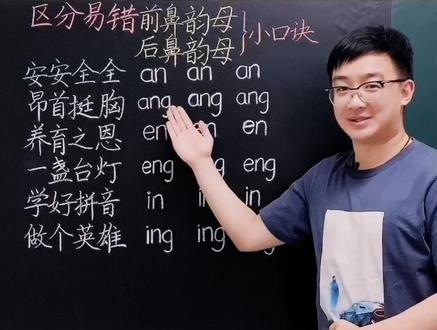 区分易错前鼻韵母
后鼻韵母
小口诀
安安全全 an an an
昂首挺胸 ang ang ang
养育之恩 en en
一盏台灯 eng eng
学好拼音 in in
做个英雄 ing ing ing